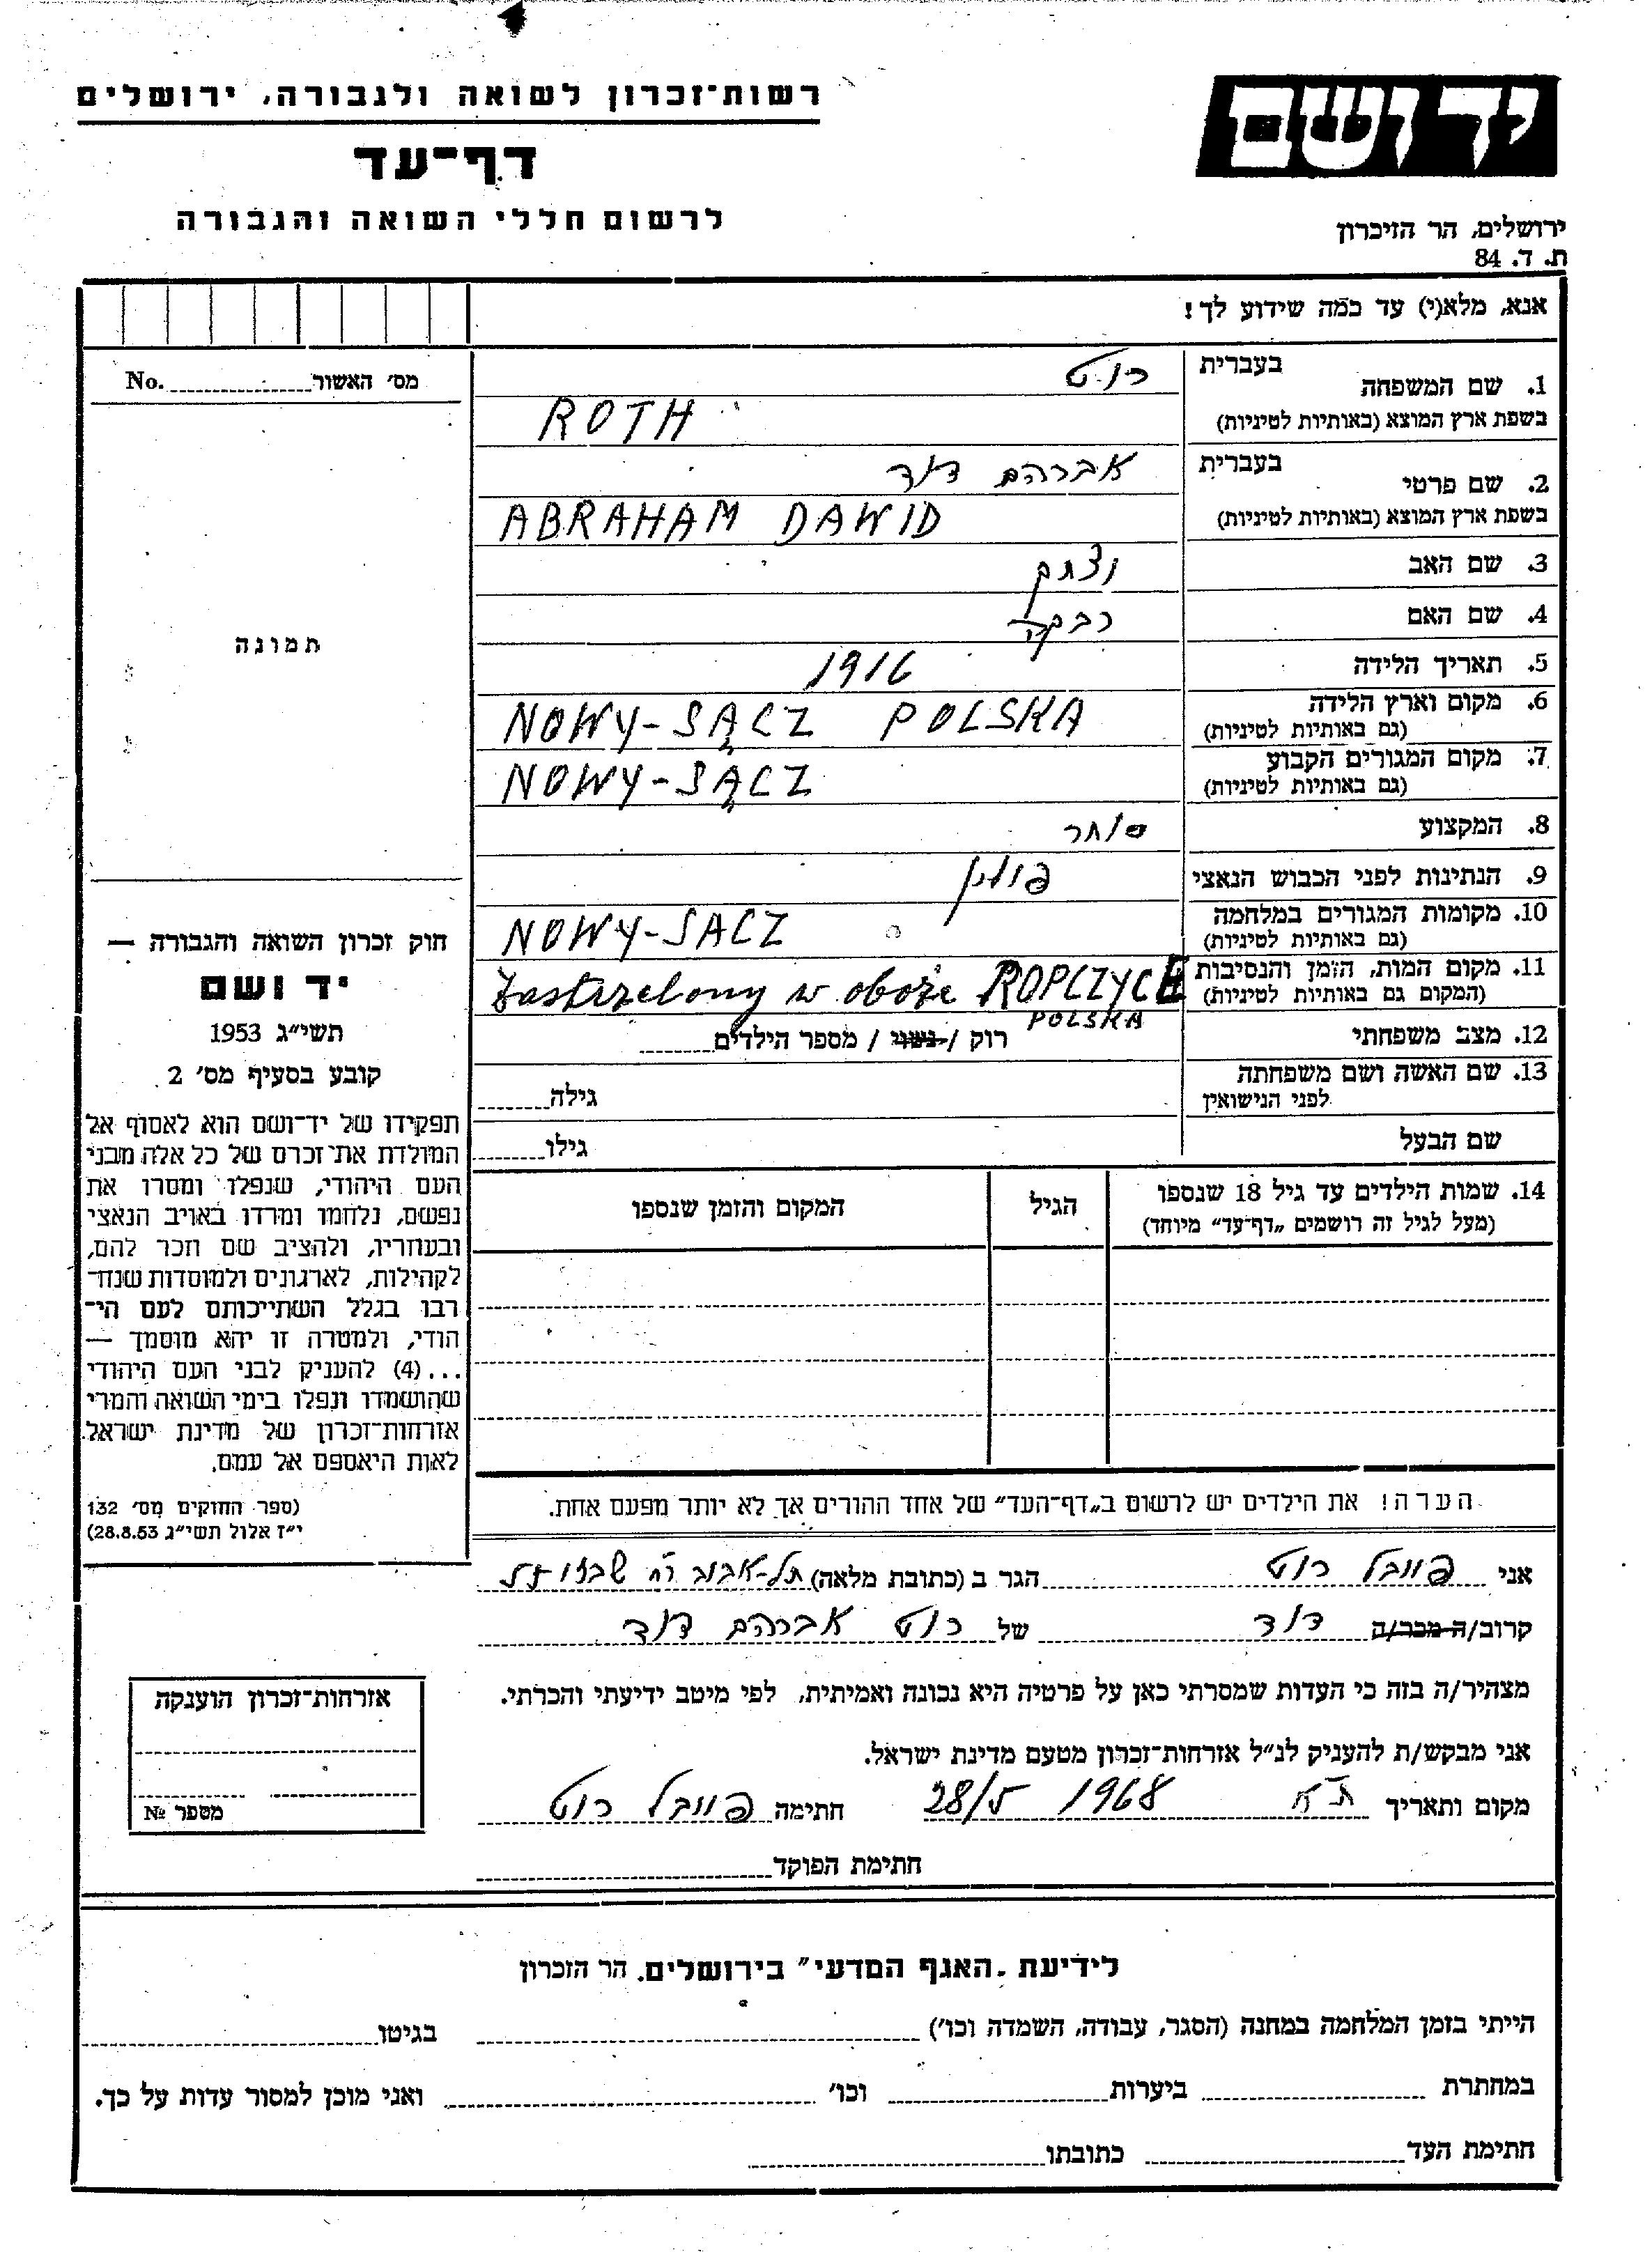 יד ושם
רשות־זכרון לשואה ולגבורה, ירושלים
דף־עד
לרשום חללי השואה והגבורה
ירושלים, הר הזיכרון
ת. ד. 84
אנא, מלא(י) עד כמה שידוע לך!
1. שם המשפחה בעברית רוט
בשפת ארץ המוצא (באותיות לטיניות) ROTH
2. שם פרטי בעברית אברהם דוד
בשפת ארץ המוצא (באותיות לטיניות) ABRAHAM DAWID
3. שם האב יצחק
4. שם האם רבקה
5. תאריך הלידה 1916
6. מקום וארץ הלידה NOWY-SĄCZ POLSKA
(גם באותיות לטיניות)
7. מקום המגורים הקבוע NOWY-SĄCZ
(גם באותיות לטיניות)
8. המקצוע סוחר
9. הנתינות לפני הכבוש הנאצי פולין
10. מקומות המגורים במלחמה NOWY-SACZ
(גם באותיות לטיניות)
11. מקום המות, הזמן והנסיבות Zastrzelony w obozie ROPCZYCE
(המקום גם באותיות לטיניות) POLSKA
12. מצב משפחתי רוק / נשוי / מספר הילדים
13. שם האשה ושם משפחתה
לפני הנישואין גילה
שם הבעל גילו
14. שמות הילדים עד גיל 18 שנספו הגיל המקום והזמן שנספו
(מעל לגיל זה רושמים „דף־עד" מיוחד)
הערה! את הילדים יש לרשום ב„דף־העד" של אחד ההורים אך לא יותר מפעם אחת.
מס׳ האשור No.
תמונה
חוק זכרון השואה והגבורה —
יד ושם
תשי״ג 1953
קובע בסעיף מס׳ 2
תפקידו של יד־ושם הוא לאסוף אל
המולדת את זכרם של כל אלה מבני
העם היהודי, שנפלו ומסרו את
נפשם, נלחמו ומרדו באויב הנאצי
ובעוזריו, ולהציב שם וזכר להם,
לקהילות, לארגונים ולמוסדות שנח־
רבו בגלל השתייכותם לעם הי־
הודי, ולמטרה זו יהא מוסמך —
...(4) להעניק לבני העם היהודי
שהושמדו ונפלו בימי השואה והמרי
אזרחות־זכרון של מדינת ישראל
לאות היאספם אל עמם.
(ספר החוקים מס׳ 132
י״ז אלול תשי״ג 28.8.53)
אני פייבל רוט הגר ב (כתובת מלאה) תל-אביב רח שבזי
קרוב/ה מכר/ה דוד של רוט אברהם דוד
מצהיר/ה בזה כי העדות שמסרתי כאן על פרטיה היא נכונה ואמיתית, לפי מיטב ידיעתי והכרתי.
אני מבקש/ת להעניק לנ״ל אזרחות־זכרון מטעם מדינת ישראל.
מקום ותאריך ת״א 28/5 1968 חתימה פייבל רוט
חתימת הפוקד
אזרחות־זכרון הוענקה
מספר №
לידיעת „האגף המדעי" בירושלים, הר הזכרון
הייתי בזמן המלחמה במחנה (הסגר, עבודה, השמדה וכו׳) בגיטו
במחתרת ביערות וכו׳ ואני מוכן למסור עדות על כך.
חתימת העד כתובתו